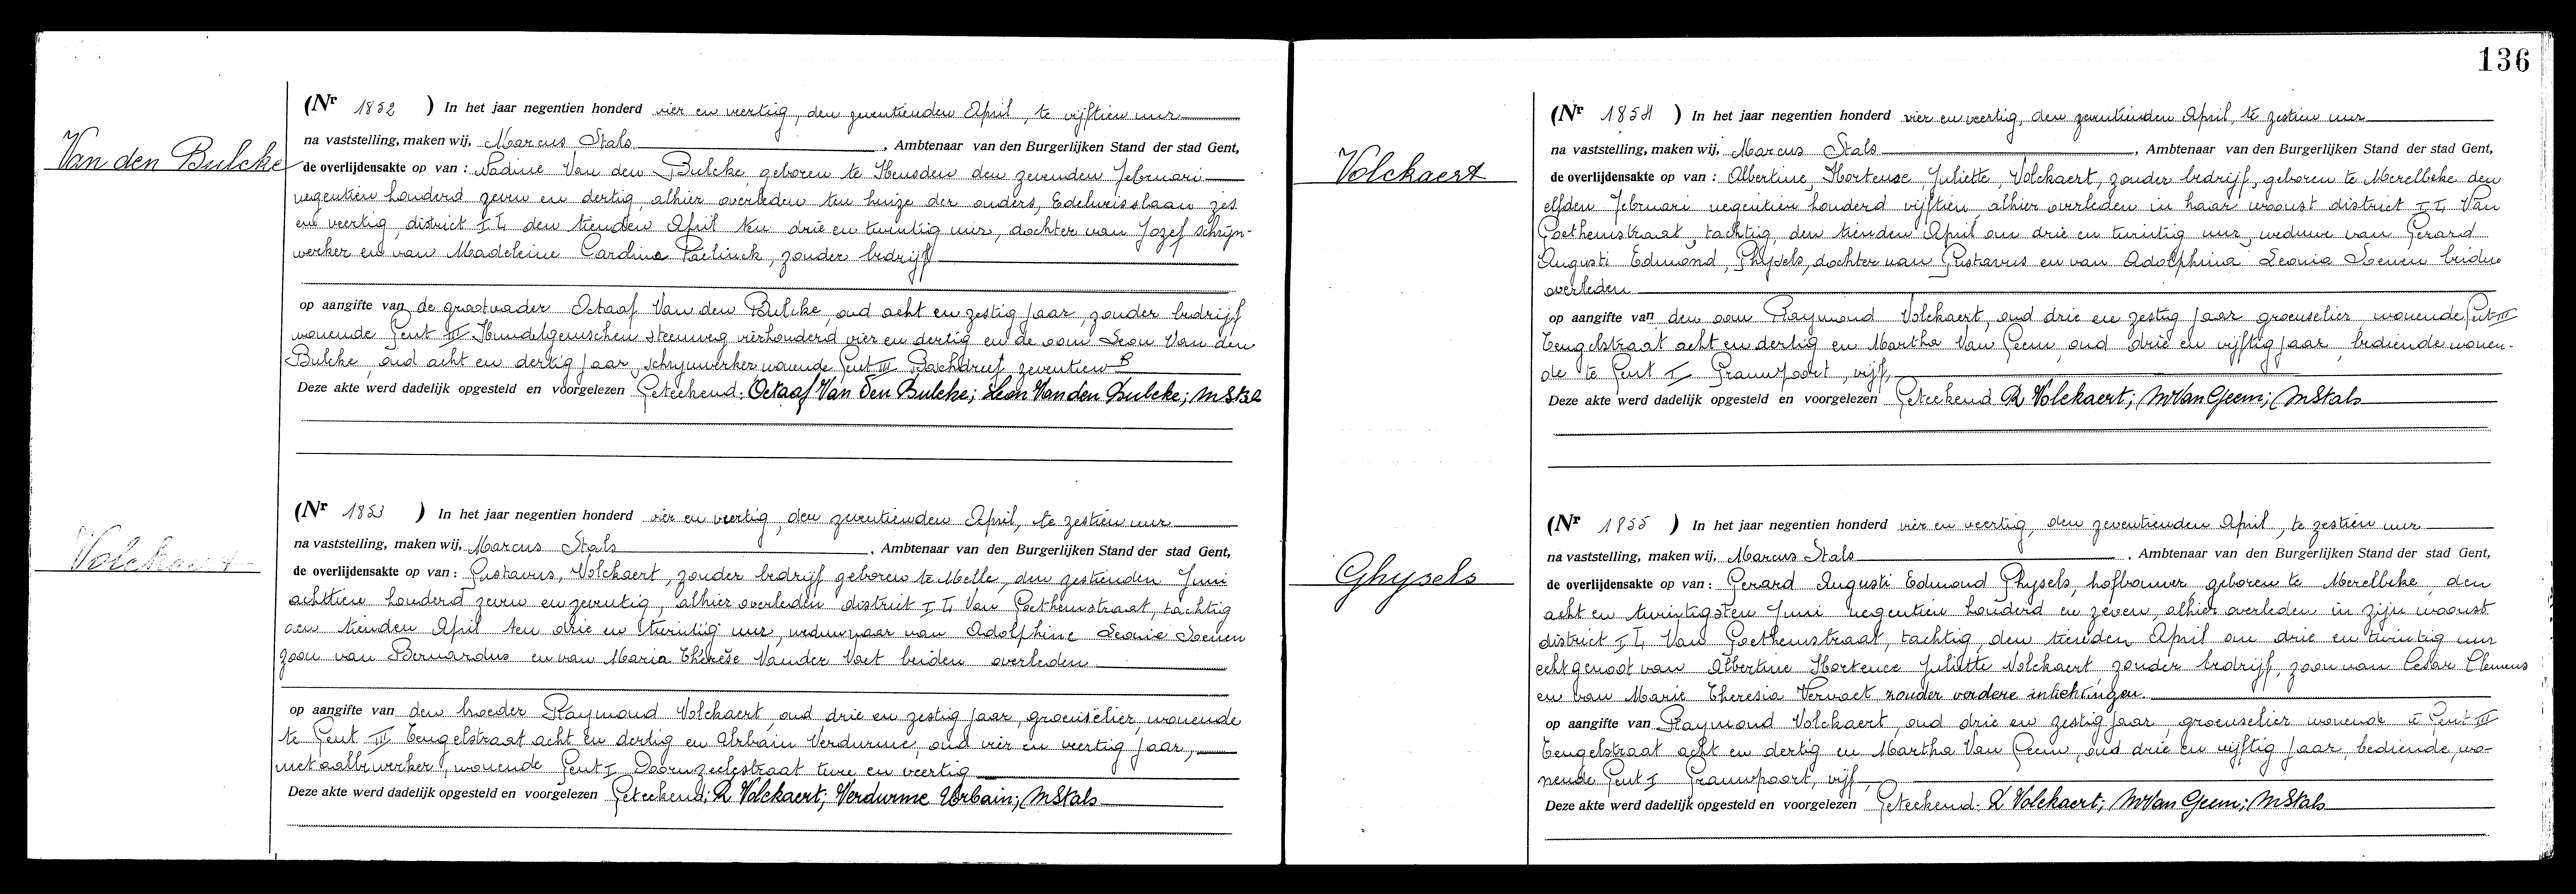 Van den Bulcke
(Nr 1852 ) In het jaar negentien honderd vier en veertig, den zeventienden April, te vijftien uur
na vaststelling, maken wij, Marcus Stals, Ambtenaar van den Burgerlijken Stand der stad Gent,
de overlijdensakte op van : Nadine Van den Bulcke, geboren te Heusden den zevenden Februari
negentien honderd zeven en dertig, alhier overleden ten huize der ouders, Edelweisslaan zes
en veertig, district I4 den tienden April ten drie en twintig uur, dochter van Jozef schrijn-
werker en van Madeleine Carolina Paelinck, zonder bedrijf
op aangifte van de grootvader Octaaf Van den Bulcke oud acht en zestig jaar, zonder bedrijf
wonende Gent III Hundelgemschen steenweg vierhonderd vier en dertig en de oom Leon Van den
Bulcke, oud acht en dertig jaar, schrijnwerker, wonende Gent III Boschdreef zeventien B
Deze akte werd dadelijk opgesteld en voorgelezen Geteekend: Octaaf Van den Bulcke; Leon Van den Bulcke; M Stals
Volckaert
(Nr 1853 ) In het jaar negentien honderd vier en veertig, den zeventienden April, te zestien uur
na vaststelling, maken wij, Marcus Stals, Ambtenaar van den Burgerlijken Stand der stad Gent,
de overlijdensakte op van : Gustavus, Volckaert, zonder bedrijf geboren te Melle, den zestienden Juni
achttien honderd zeven en zeventig, alhier overleden district I4 Van Goethemstraat, tachtig
den tienden April ten drie en twintig uur, weduwnaar van Adolphine Leonie Soenen
zoon van Bernardus en van Maria Thérèse Vander Voet beiden overleden
op aangifte van den broeder Raymond Volckaert, oud drie en zestig jaar, groenselier, wonende
te Gent III Tengelstraat acht en dertig en Urbain Verdurme, oud vier en veertig jaar,
metaalbewerker, wonende Gent I Doornzeelestraat twee en veertig
Deze akte werd dadelijk opgesteld en voorgelezen Geteekend; R Volckaert; Verdurme Urbain; M Stals
136
Volckaert
(Nr 1854 ) In het jaar negentien honderd vier en veertig, den zeventienden April, te zestien uur
na vaststelling, maken wij, Marcus Stals, Ambtenaar van den Burgerlijken Stand der stad Gent,
de overlijdensakte op van : Albertine, Hortense, Juliette, Volckaert, zonder bedrijf, geboren te Merelbeke den
elfden Februari negentien honderd vijftien, alhier overleden in haar woonst district I4 Van
Goethemstraat, tachtig, den tienden April om drie en twintig uur, weduwe van Gerard
Augusti Edmond, Ghysels, dochter van Gustavus en van Adolphina Leonia Soenen beiden
overleden
op aangifte van den oom Raymond Volckaert, oud drie en zestig jaar groenselier wonende Gent III
Tengelstraat acht en dertig en Martha Van Geem, oud drie en vijftig jaar, bediende wonen-
de te Gent I Grauwpoort, vijf,
Deze akte werd dadelijk opgesteld en voorgelezen Geteekend R Volckaert; M Van Geem; M Stals
Ghysels
(Nr 1855 ) In het jaar negentien honderd vier en veertig, den zeventienden April, te zestien uur
na vaststelling, maken wij, Marcus Stals, Ambtenaar van den Burgerlijken Stand der stad Gent,
de overlijdensakte op van : Gerard Augusti Edmond Ghysels, hofbouwer, geboren te Merelbeke, den
acht en twintigsten Juni negentien honderd en zeven, alhier overleden in zijn woonst
district I4 Van Goethemstraat, tachtig, den tienden April om drie en twintig uur
echtgenoot van Albertine Hortence Juliette Volckaert, zonder bedrijf, zoon van Cesar Clemens
en van Marie Theresia Vervaet zonder verdere inlichtingen.
op aangifte van Raymond Volckaert, oud drie en zestig jaar, groenselier wonende te Gent III
Tengelstraat acht en dertig en Martha Van Geem, oud drie en vijftig jaar, bediende, wo-
nende Gent I Grauwpoort, vijf,
Deze akte werd dadelijk opgesteld en voorgelezen Geteekend. R Volckaert; M Van Geem; M Stals